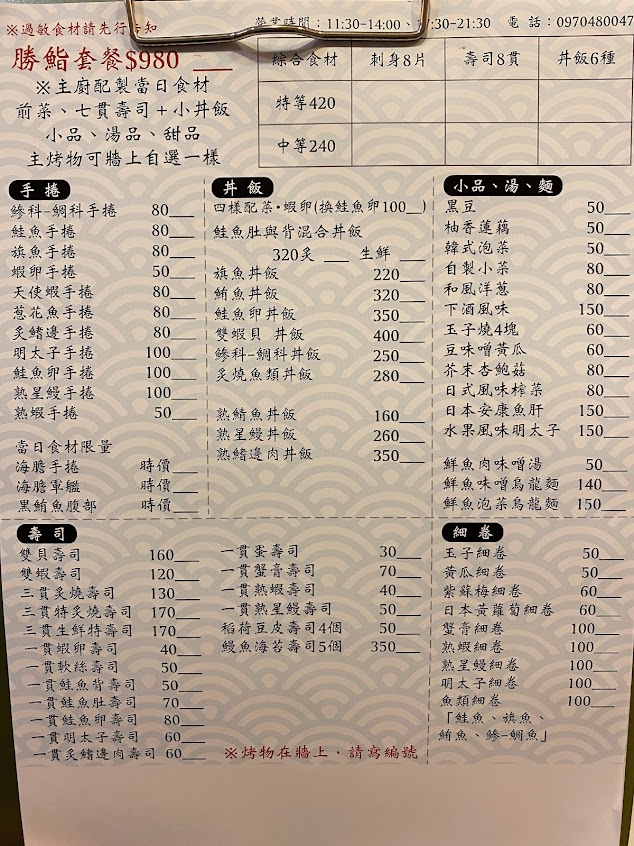 ※過敏食材請先行告知
營業時間：11:30-14:00、17:30-21:30 電話：0970480047
勝鮨套餐$980
※主廚配製當日食材
前菜、七貫壽司+小丼飯
小品、湯品、甜品
主烤物可牆上自選一樣
綜合食材 刺身8片 壽司8貫 丼飯6種
特等420
中等240
手捲
鰺科-鯛科手捲 80
鮭魚手捲 80
旗魚手捲 80
蝦卵手捲 50
天使蝦手捲 80
蔥花魚手捲 80
炙鰭邊手捲 80
明太子手捲 100
鮭魚卵手捲 100
熟星鰻手捲 100
熟蝦手捲 50
當日食材限量
海膽手捲 時價
海膽軍艦 時價
黑鮪魚腹部 時價
丼飯
四樣配菜·蝦卵(換鮭魚卵100 )
鮭魚肚與背混合丼飯
320炙 生鮮
旗魚丼飯 220
鮪魚丼飯 320
鮭魚卵丼飯 350
雙蝦貝 丼飯 400
鰺科-鯛科丼飯 250
炙燒魚類丼飯 280
熟鯖魚丼飯 160
熟星鰻丼飯 260
熟鰭邊肉丼飯 350
小品、湯、麵
黑豆 50
柚香蓮藕 50
韓式泡菜 50
自製小菜 80
和風洋蔥 80
下酒風味 150
玉子燒4塊 60
豆味噌黃瓜 60
芥末杏鮑菇 80
日式風味榨菜 80
日本安康魚肝 150
水果風味明太子 150
鮮魚肉味噌湯 50
鮮魚味噌烏龍麵 140
鮮魚泡菜烏龍麵 150
壽司
雙貝壽司 160
雙蝦壽司 120
三貫炙燒壽司 130
三貫特炙燒壽司 170
三貫生鮮特壽司 170
一貫蝦卵壽司 40
一貫軟絲壽司 50
一貫鮭魚背壽司 50
一貫鮭魚肚壽司 70
一貫鮭魚卵壽司 80
一貫明太子壽司 60
一貫炙鰭邊肉壽司 60
一貫蛋壽司 30
一貫蟹膏壽司 70
一貫熟蝦壽司 40
一貫熟星鰻壽司 50
稻荷豆皮壽司4個 50
鰻魚海苔壽司5個 350
※烤物在牆上，請寫編號
細卷
玉子細卷 50
黃瓜細卷 50
紫蘇梅細卷 60
日本黃蘿蔔細卷 60
蟹膏細卷 100
熟蝦細卷 100
熟星鰻細卷 100
明太子細卷 100
魚類細卷 100
「鮭魚、旗魚、
鮪魚、鰺-鯛魚」